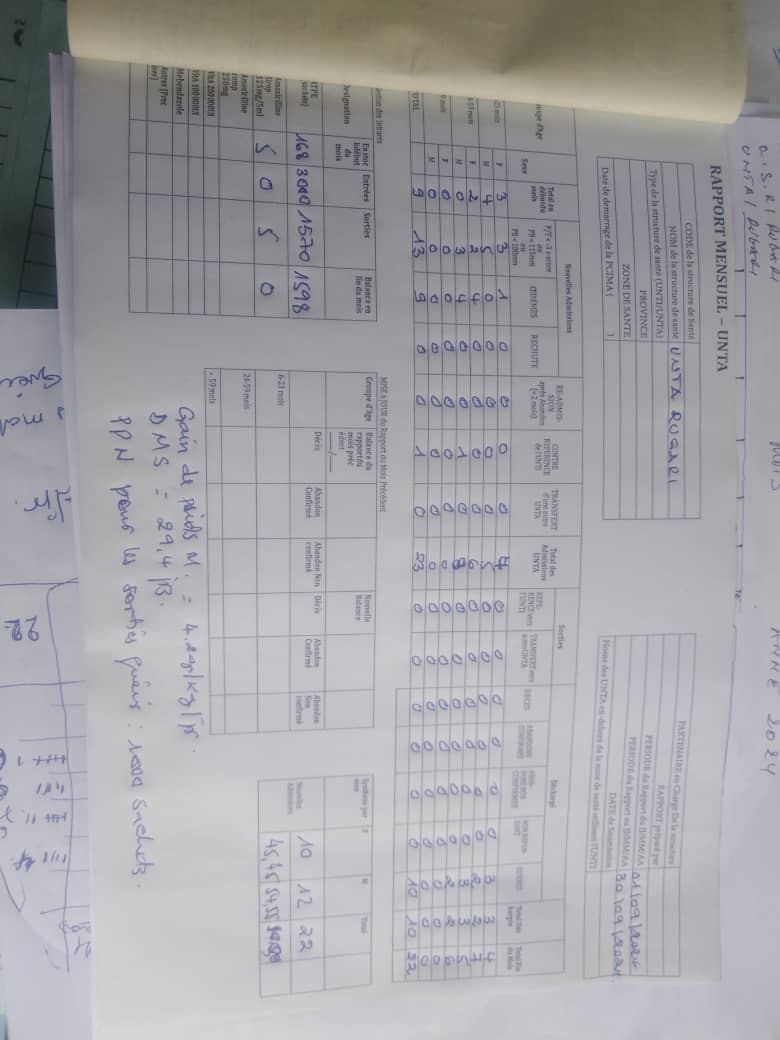 C.S.R/ RUGARI MOIS ANNEE 2024
UNTA/ RUGARI
RAPPORT MENSUEL – UNTA
CODE de la structure de Santé
NOM de la structure de santé UNTA RUGARI
Type de la structure de santé (UNTI/UNTA)
PROVINCE
ZONE DE SANTE
Date de demarrage de la PCIMA ( )
PARTENAIRE en Charge De la structure
RAPPORT préparé par
PERIODE du Rapport du JJ/MM/AA 01/09/2024
PERIODE du Rapport au JJ/MM/AA 30/09/2024
DATE de Soumission
Noms des UNTA en-dehors de la zone de santé utilisant l'UNTI
Groupe d'Age Sexe Total au début du mois Nouvelles Admissions RE-ADMISSION après Abandon (< 2 mois) CONTRE REFERENCE de l'UNTI TRANSFERT d'une autre UNTA Total des Admissions UNTA Sorties Décharge
P/T < -3 z-score ou PB < 115mm ou PB < 180mm ŒDEMES RECHUTE REFERENCE vers l'UNTI TRANSFERT vers autre UNTA DECES ABANDONS CONFIRMES ABANDONS NON CONFIRMES NON REPONDANT Total Déchargés Total Fin du Mois
-23 mois F 3 3 1 0 0 0 0 7 0 0 0 0 0 0 3 3 4
M 4 5 0 0 0 0 0 5 0 0 0 0 0 0
-59 mois F 2 2 4 0 0 0 0 6 0 0 0 0 0 0
M 0 3 4 0 0 1 0 0 0 0 0 0 0
mois F 0 0 0 0 0 0 0 0 0 0 0 0 0 0
M 0 0 0 0 0 0 0 0 0 0 0 0 0 0 0 0 0
TOTAL 9 13 9 0 0 1 0 23 0 0 0 0 0 0 10 10 22
Gestion des Intrants
Designation En stock début du mois Entrées Sorties Balance en fin du mois
ATPE (sachets) 168 3000 1570 1598
Amoxicilline sirop 125mg/5ml 5 0 5 0
Amoxicilline comp 250mg
VitA 200 000UI
VitA 100 000UI
Mebendazole
Autres (Préciser)
MISE à JOUR du Rapport du Mois Précédent
Groupe d'Age Balance du rapport du mois précédent ___/___ Nouvelle Balance
Décès Abandon Confirmé Abandon Non confirmé Décès Abandon Confirmé Abandon Non confirmé
6-23 mois
24-59 mois
> 59 mois
Synthèse par sexe F M Total
Nouvelles Admissions 10 12 22
45,45 54,55
Gain de poids M. = 4.2g/kg/jr.
DMS = 29,4 jrs.
PPN pour les sortiés guéris : 1000 sachets.